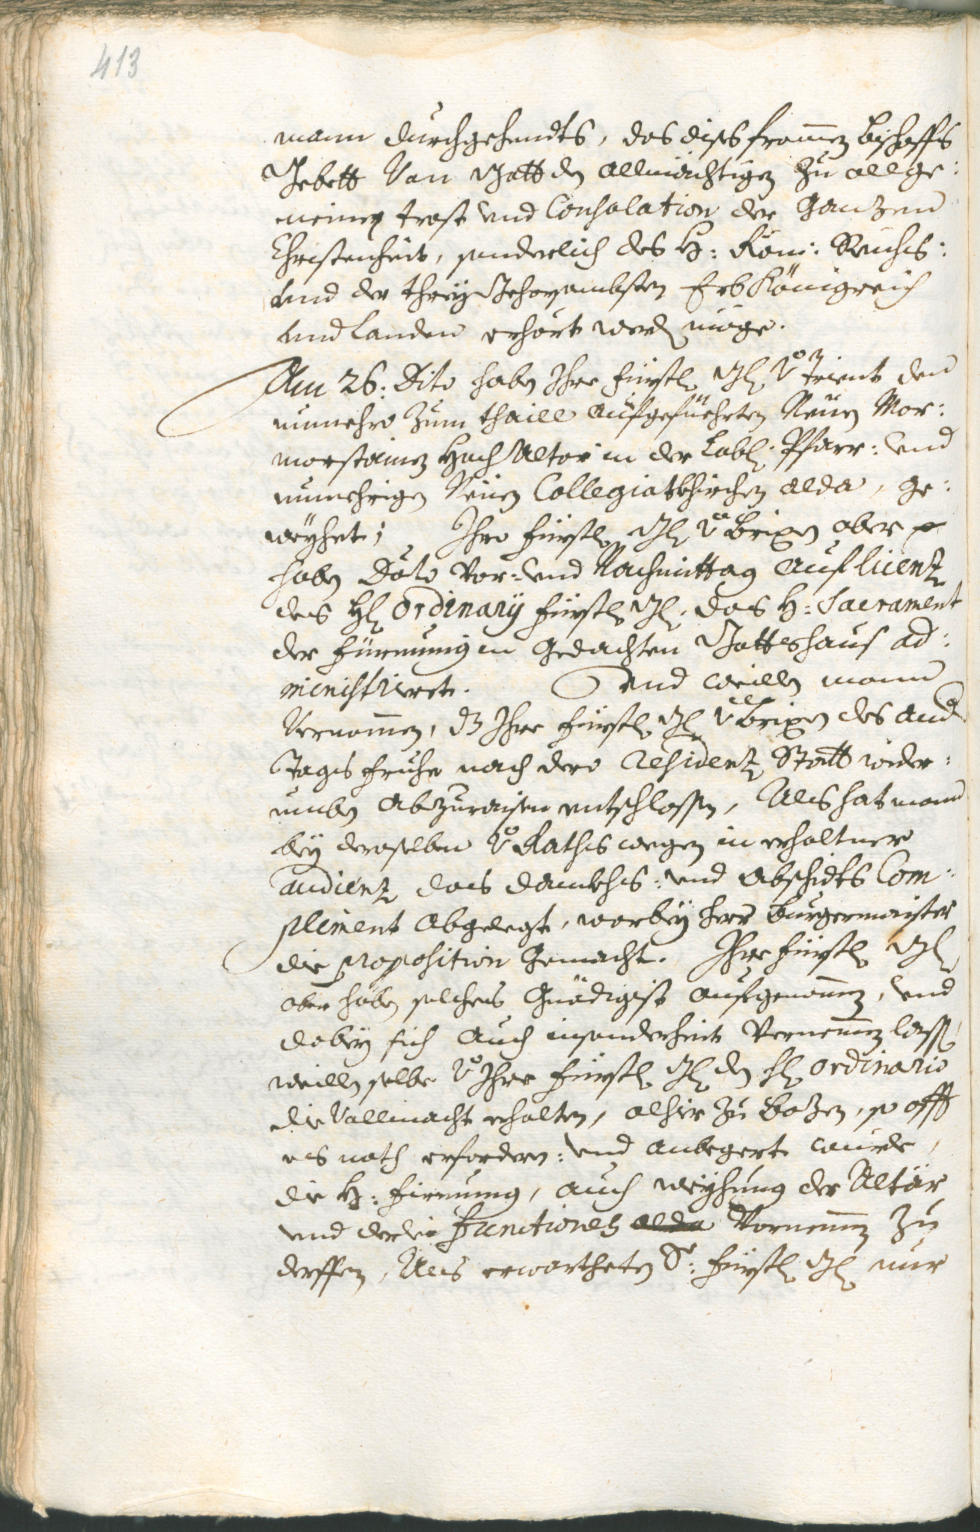 413
mann durchgehendts, das dises fromen Bischoffs
Gebett Von Gott den Allmächtigen zu allge:
meinen trost und Consolation der Ganzen
Christenheit, sonderlich des H: Röm: Reichs:
und der Erb Königreich
und Landen erhört werden möge.
Am 26: Dito haben Ihre Fürstl. Gl. v. Trient den
nunmehro zum thaill aufgefüehrten Neuen Mar:
morstainen Hoch Altar in der Löbl: Pfarr: und
nunmehrigen Neuen Collegiatkhirchen alda, ge:
weyhet; Ihro Fürstl. Gl. v. Brixen aber
haben Dato Vor: und Nachmittag auf licenz
des Hl. Ordinarij Fürstl. Gl: das H: Sacrament
der Fürmung in Gedachten Gotteshaus ad:
ministriert. Und weillen mann
Vernomen, dz Ihre Fürstl. Gl. v. Brixen des andern
Tags fruhe nach dero Residenz Statt wider:
umben abzuraisen entschlossen, Als hat mann
bey deroselben v. Raths wegen in erhaltner
audienz das dankhs: und Abschidts Com:
pliment abgelegt, worbey Herr Burgermaister
die proposition Gemacht. Ihre Fürstl. Gl.
aber haben solches Gnädigist aufgenomen, und
dabey sich auch insonderheit Vernemen lassen,
weillen selbe v. Ihre Fürstl. Gl. den Hl. ordinario
die Vollmacht erhalten, alhir zu Bozen, so offt
es noth erfordern: und anbegert wurde,
die H: Firmung, auch weyhung der Altär
und derlei Functiones alda Vornemen zu
derffen, Als erwartheten Sr: Fürstl. Gl. nur